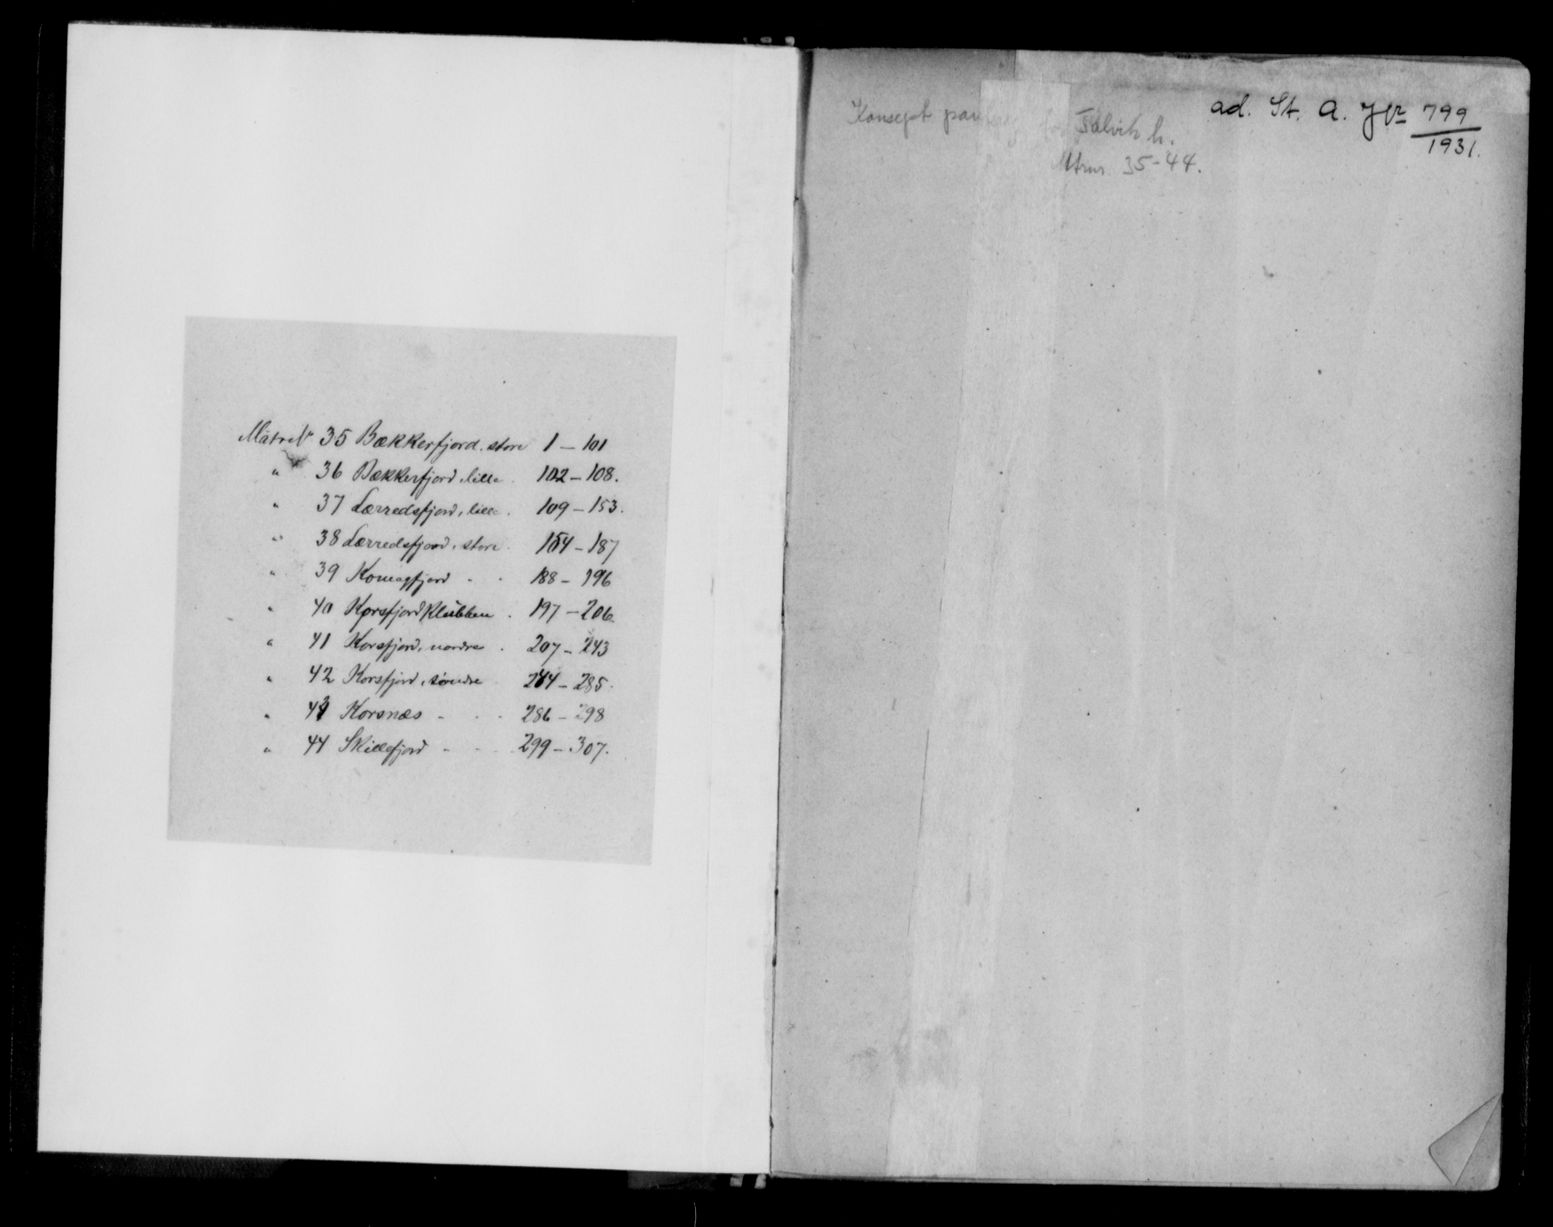 MatreN° 35 Bækkerfjord. store 1 – 101
" 36 Bækkerfjord, lille. 102 – 108.
" 37 Lærredsfjord, lille. 109 – 153.
" 38 Lærredsfjord, store. 154 – 187
" 39 Komagfjord - - 188 – 196
" 40 Korsfjordklubben . 197 – 206
" 41 Korsfjord, nordre . 207 – 243
" 42 Korsfjord, söndre 244 – 285.
" 43 Korsnæs - - - 286 – 298
" 44 Skillefjord - - - 299 – 307.
ad. St. A. Jnr 799
1931.
Konsept for Talvik h.
Mtrnr 35-44.